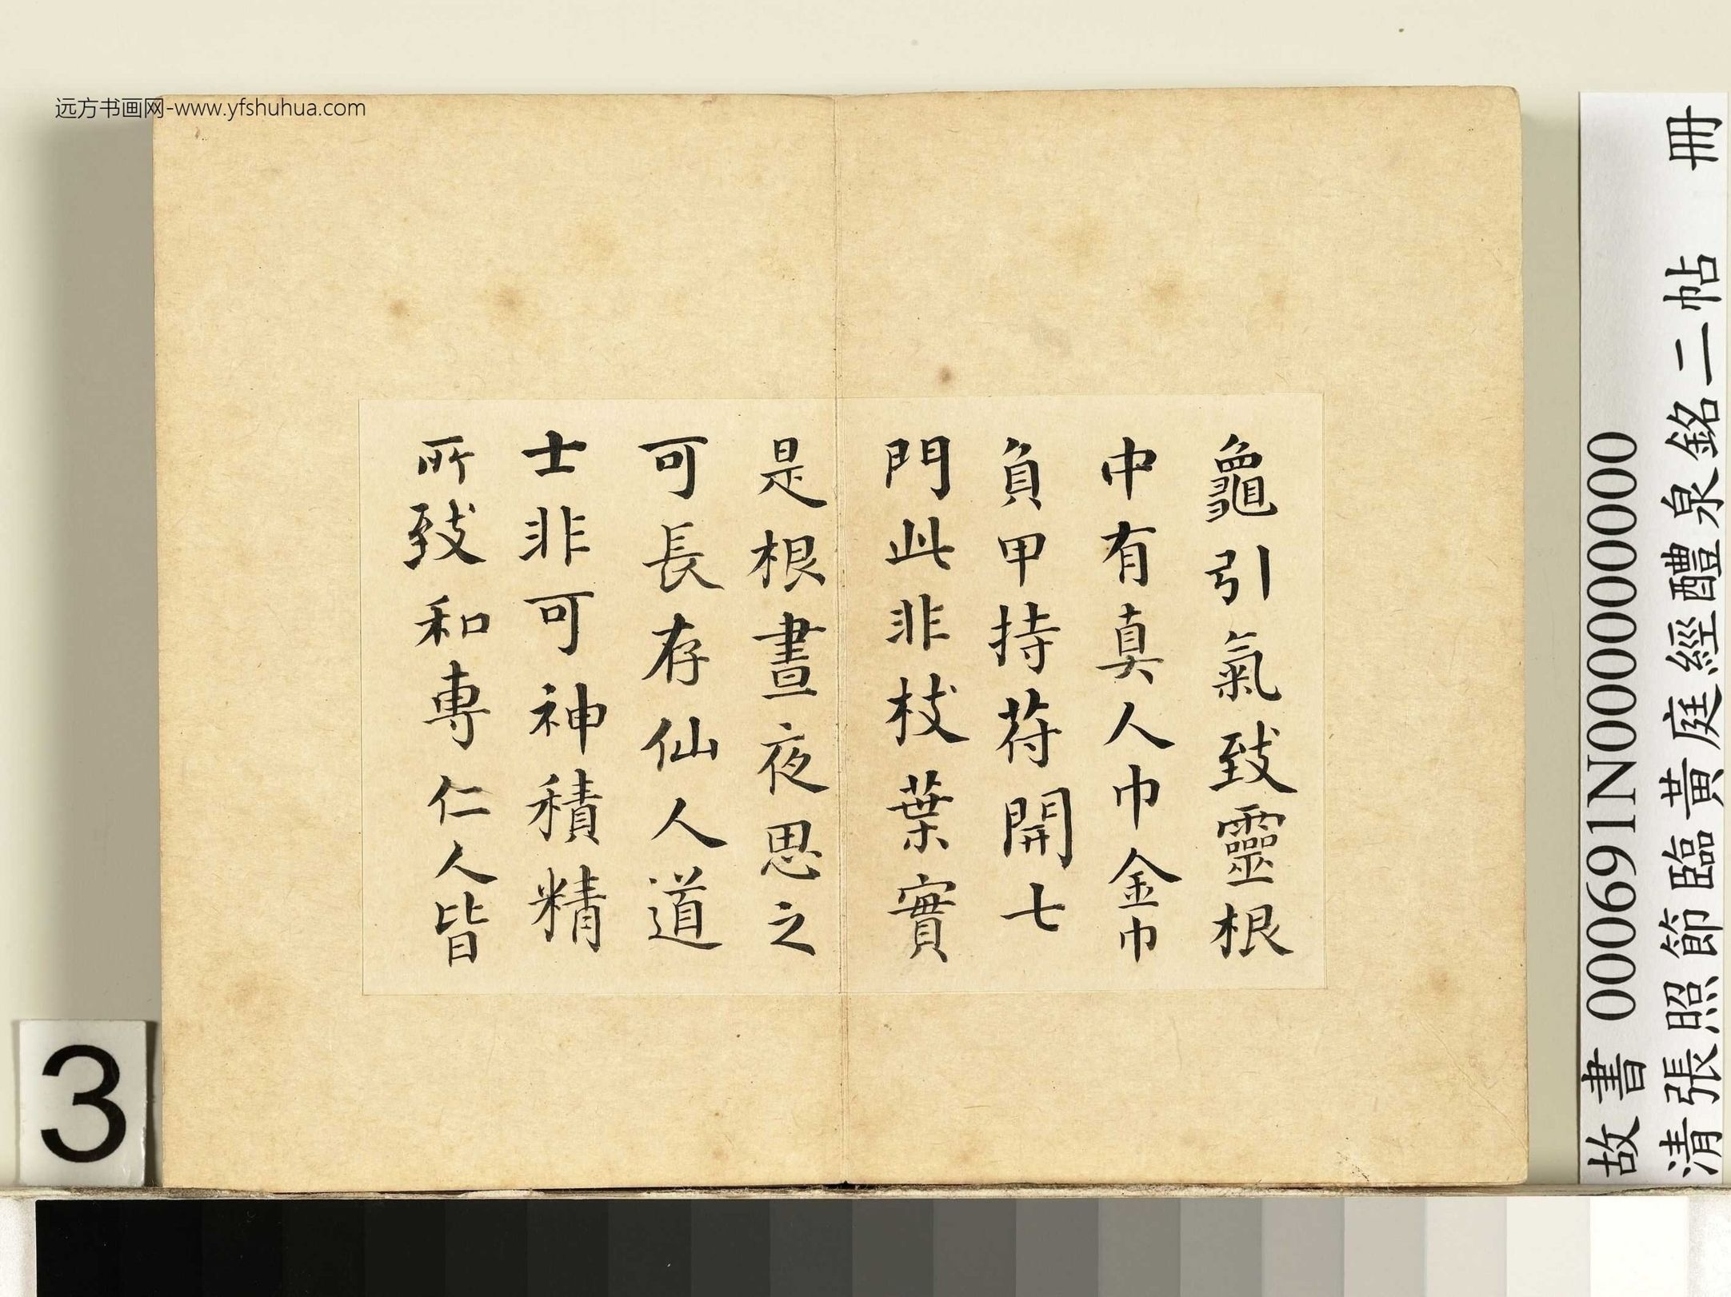 远方书画网-www.yfshuhua.com
龜引氣致靈根
中有真人巾金巾
負甲持苻開七
門此非枝葉實
是根晝夜思之
可長存仙人道
士非可神積精
所致和專仁人皆
故書 000691N000000000
清張照節臨黃庭經醴泉銘二帖 冊
3